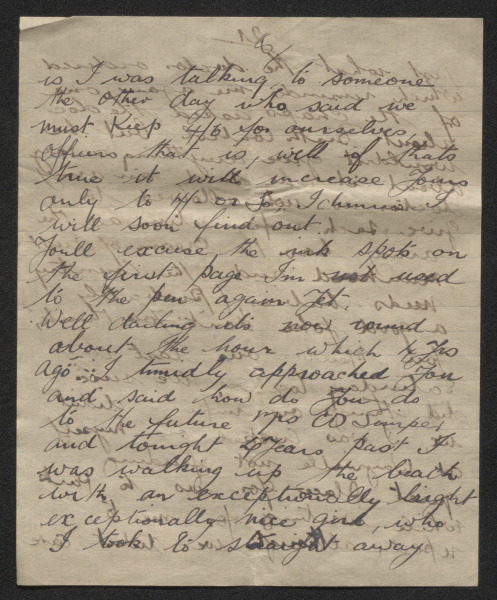 6/
is I was talking to someone
the other day who said we
must keep 4/6 for ourselves,
officers that is, well if thats
true it will increase yours
only to 4/ or so, I
will soon find out.
Youll excuse the ink spots on
the first page I'm not used
to the pen again yet.
Well darling its now round
about the hour which 4 yrs
ago I timidly approached you
and said how do you do
to the future Mrs W Semper,
and tonight 4 years past I
was walking up the beach
with an exceptionally bright
exceptionally nice girl, who
I took to straight away